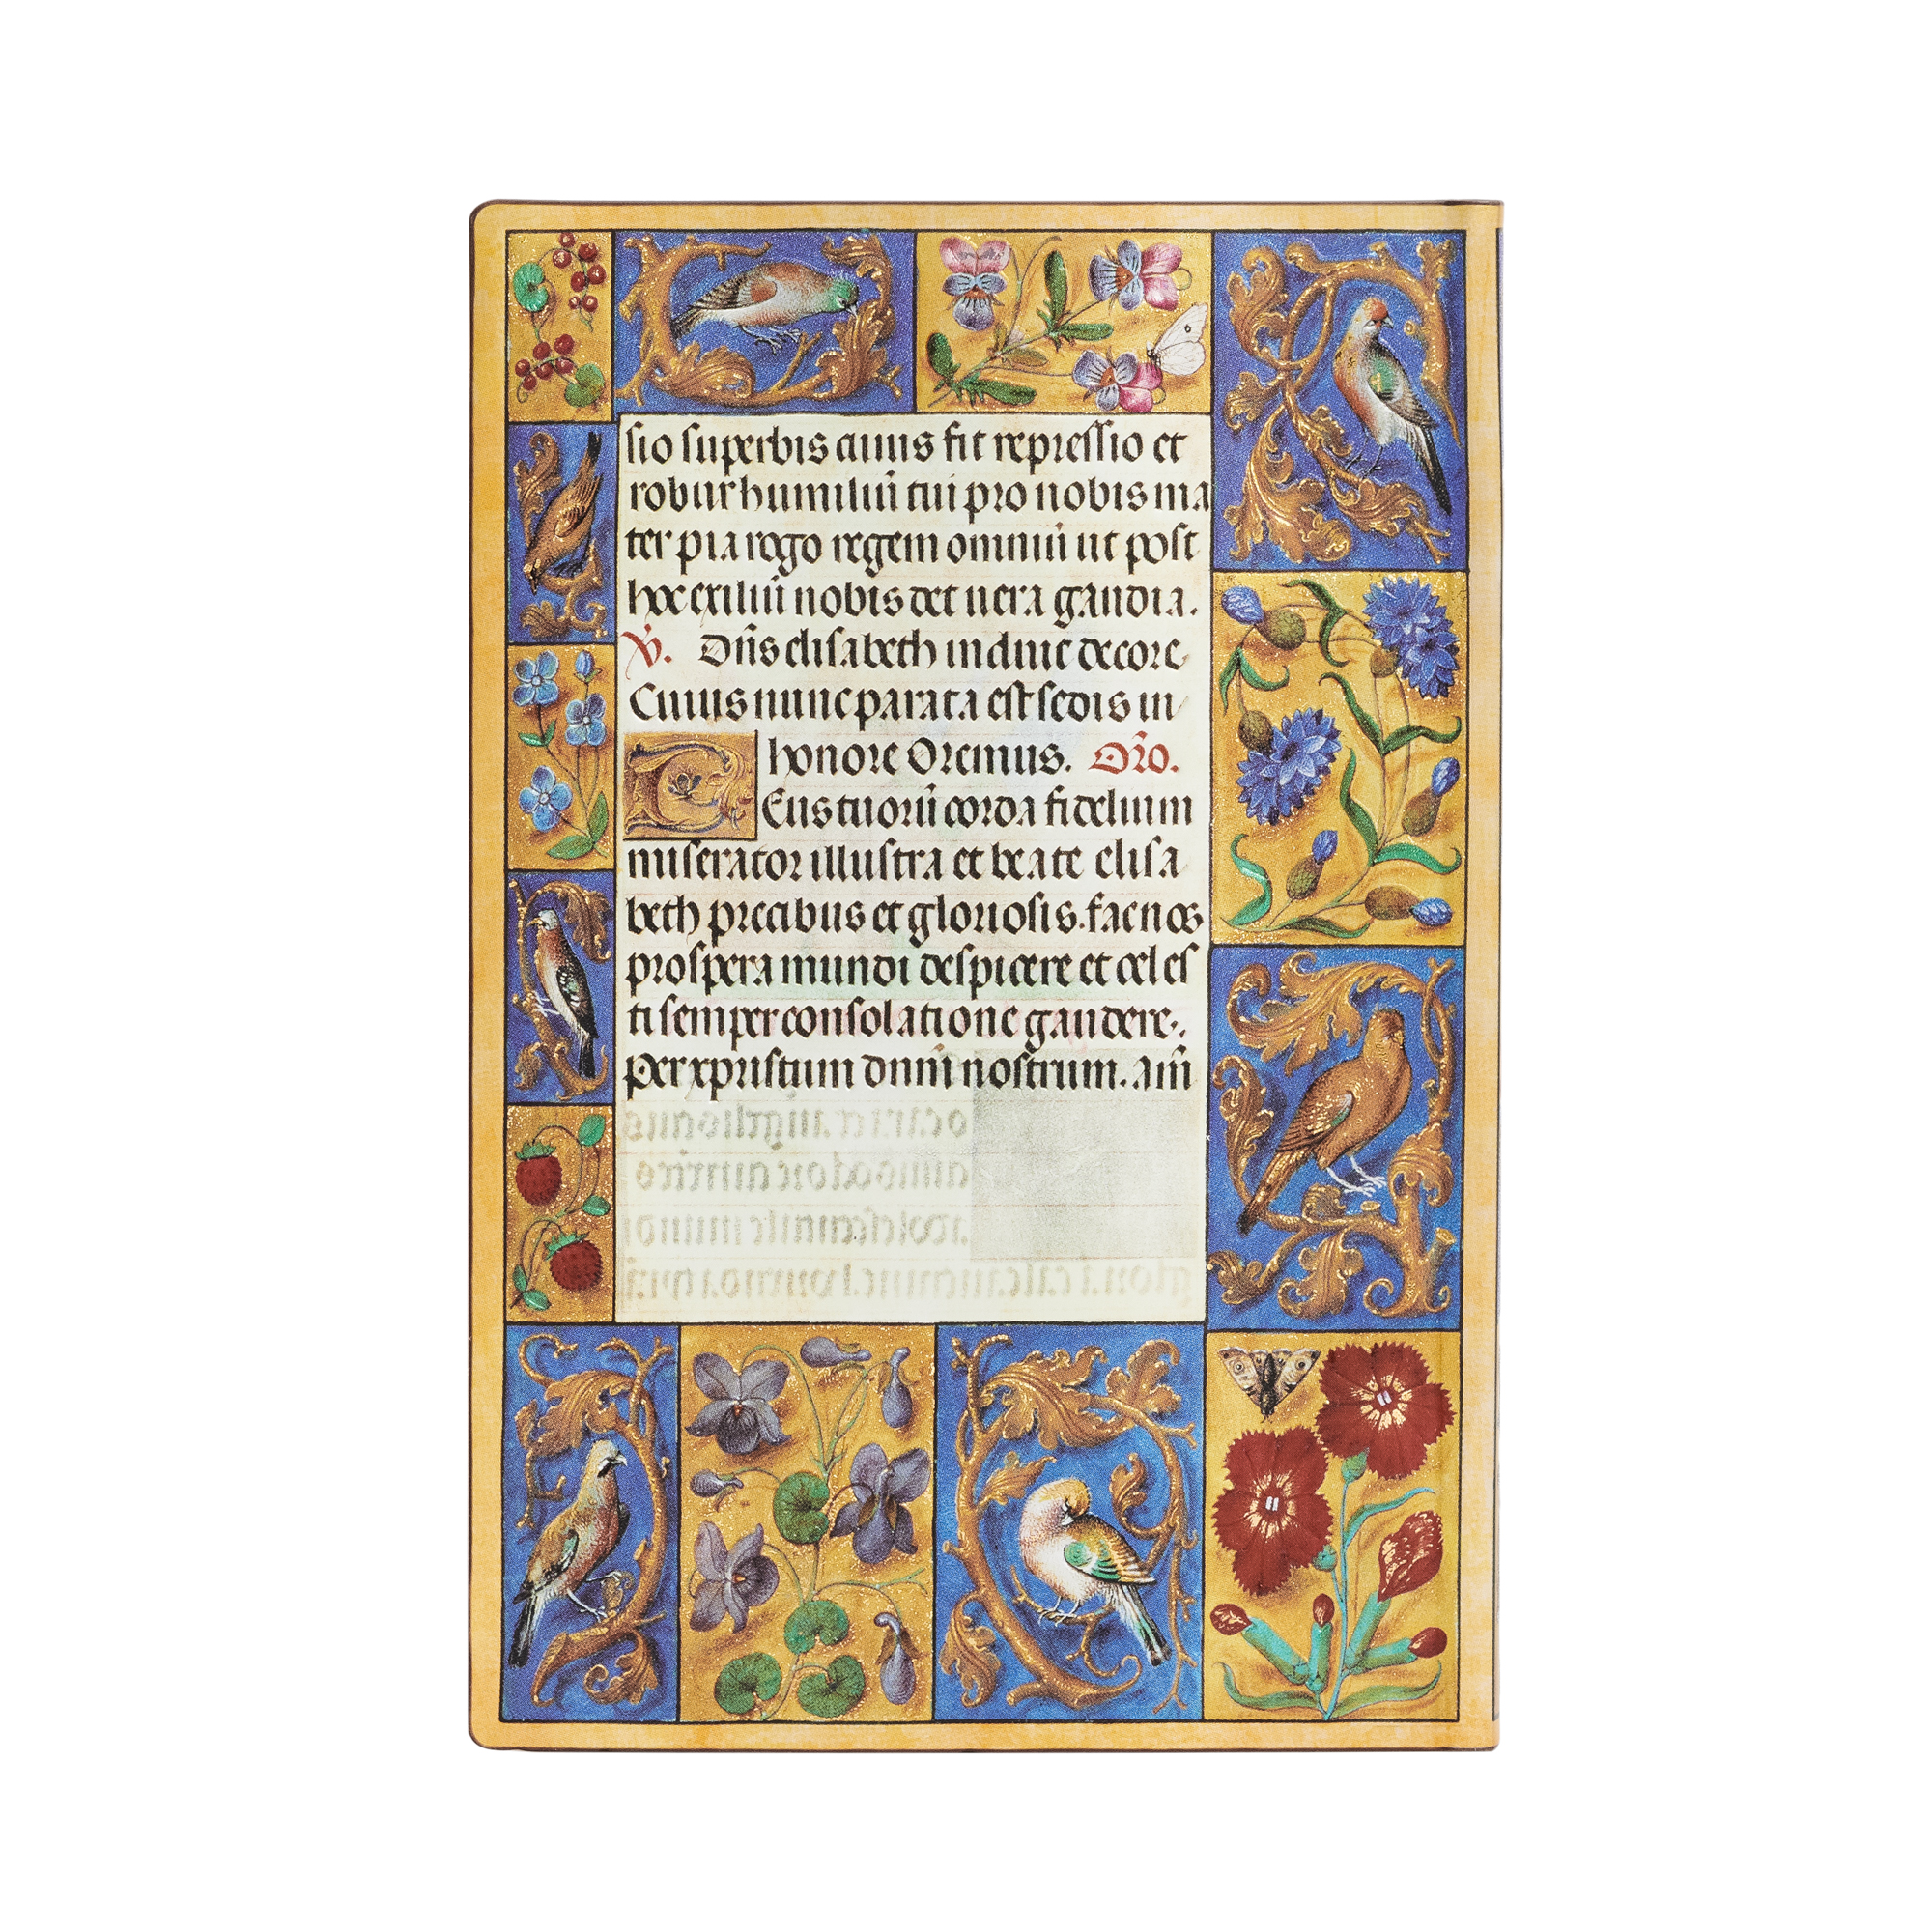 sio superbis cuius fit repressio et
robur humiliū tui pro nobis ma
ter pia rogo regem omniū ut post
hoc exiliū nobis det uera gaudia.
V̄. Dñs elisabeth induit decore
Cuius nunc parata est sedis in
honore Oremus. Or̄o.
DEus tuorū corda fidelium
miserator illustra et beate elisa
beth precibus et gloriosis. fac nos
prospera mundi despicere et celes
ti semper consolatione gaudere.
Per xpristum dnm̄ nostrum. am̄